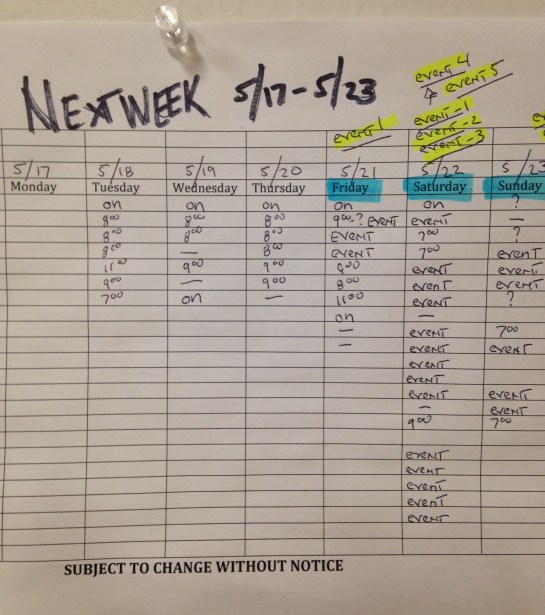 event 4
& event 5
NEXTWEEK 5/17-5/23
event-1
event 1 event-2
event-3
5/17 5/18 5/19 5/20 5/21 5/22 5/23
Monday Tuesday Wednesday Thursday Friday Saturday Sunday
on on on on on ?
800 800 800 900-? EVENT EVENT —
800 800 800 EVENT 700 ?
800 — 800 EVENT 700 EVENT
1100 900 900 900 EVENT EVENT
900 — 900 800 EVENT EVENT
700 on — 1100 EVENT ?
on —
— EVENT 700
— EVENT EVENT
EVENT
EVENT
EVENT EVENT
— EVENT
900 700
EVENT
EVENT
EVENT
EVENT
EVENT
SUBJECT TO CHANGE WITHOUT NOTICE